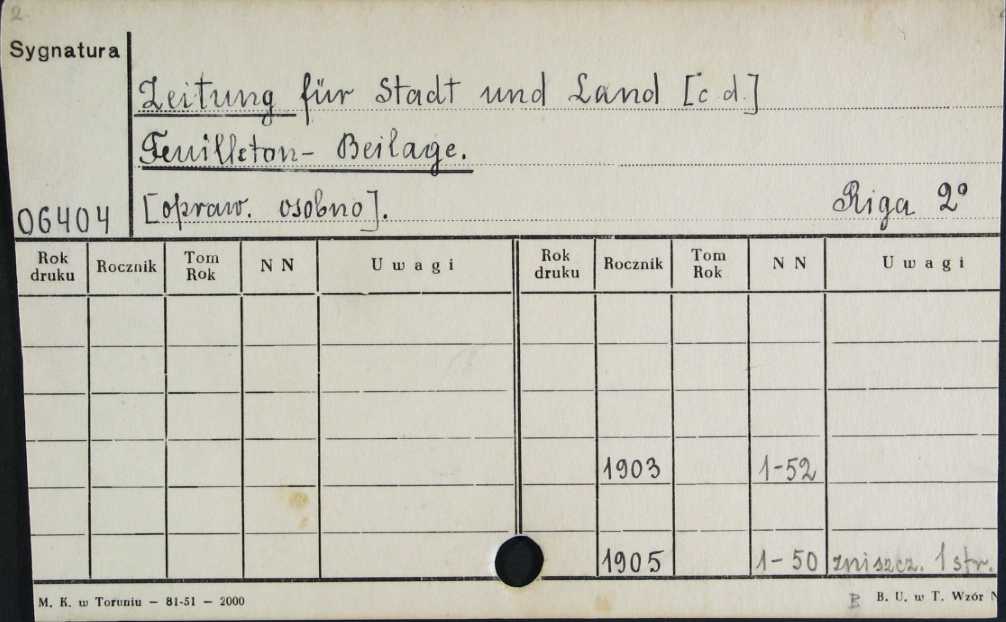 2.
Sygnatura
Zeitung für Stadt und Land [c d.]
Feuilleton- Beilage.
06404 [opraw. osobno]. Riga 2°
Rok druku Rocznik Tom Rok N N Uwagi Rok druku Rocznik Tom Rok N N Uwagi
1903 1-52
1905 1-50 zniszcz. 1 str.
M. K. w Toruniu — 81-51 — 2000 B B. U. w T. Wzór N